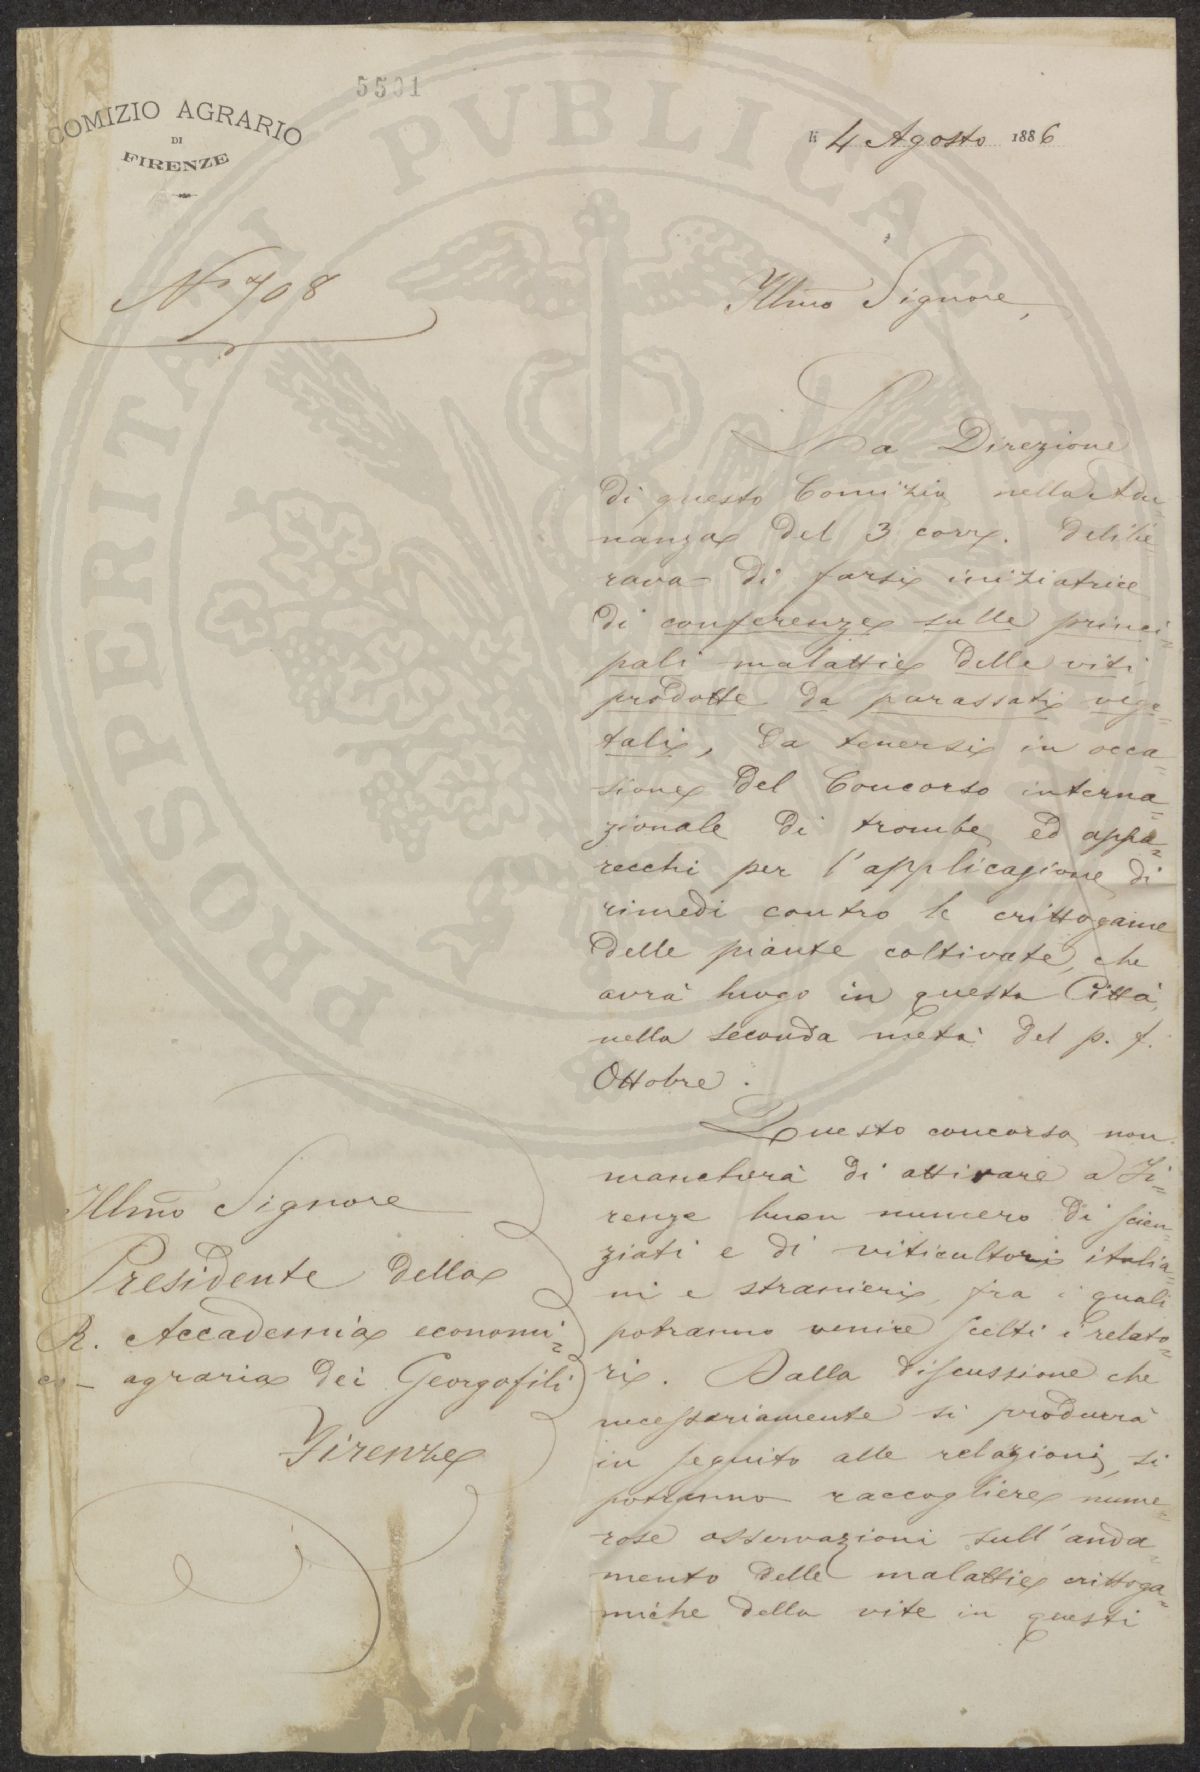 5501
COMIZIO AGRARIO
DI
FIRENZE
li 4 Agosto 1886
N° 708
Illmo Signore,
La Direzione
di questo Comizio nella Adu
nanza del 3 corr. delibe=
rava di farsi iniziatrice
di conferenze sulle princi=
pali malattie delle viti
prodotte da parassati vege=
tali, da tenersi in occa=
sione del Concorso interna=
zionale di trombe ed appa=
recchi per l'applicazione di
rimedi contro le crittogame
delle piante coltivate, che
avrà luogo in questa Città,
nella seconda metà del p. f.
Ottobre.
Questo concorso non
mancherà di attirare a Fi=
renze buon numero di scien=
ziati e di viticultori italia=
ni e stranieri, fra i quali
potranno venire scelti i relato=
ri. Dalla discussione che
necessariamente si produrrà
in seguito alle relazioni, si
potranno raccogliere nume=
rose osservazioni sull'anda=
mento delle malattie crittoga=
miche della vite in questi
Illmo Signore
Presidente della
R. Accademia economi=
co- agraria dei Georgofili
Firenze
PROSPERITATI PVBLICAE